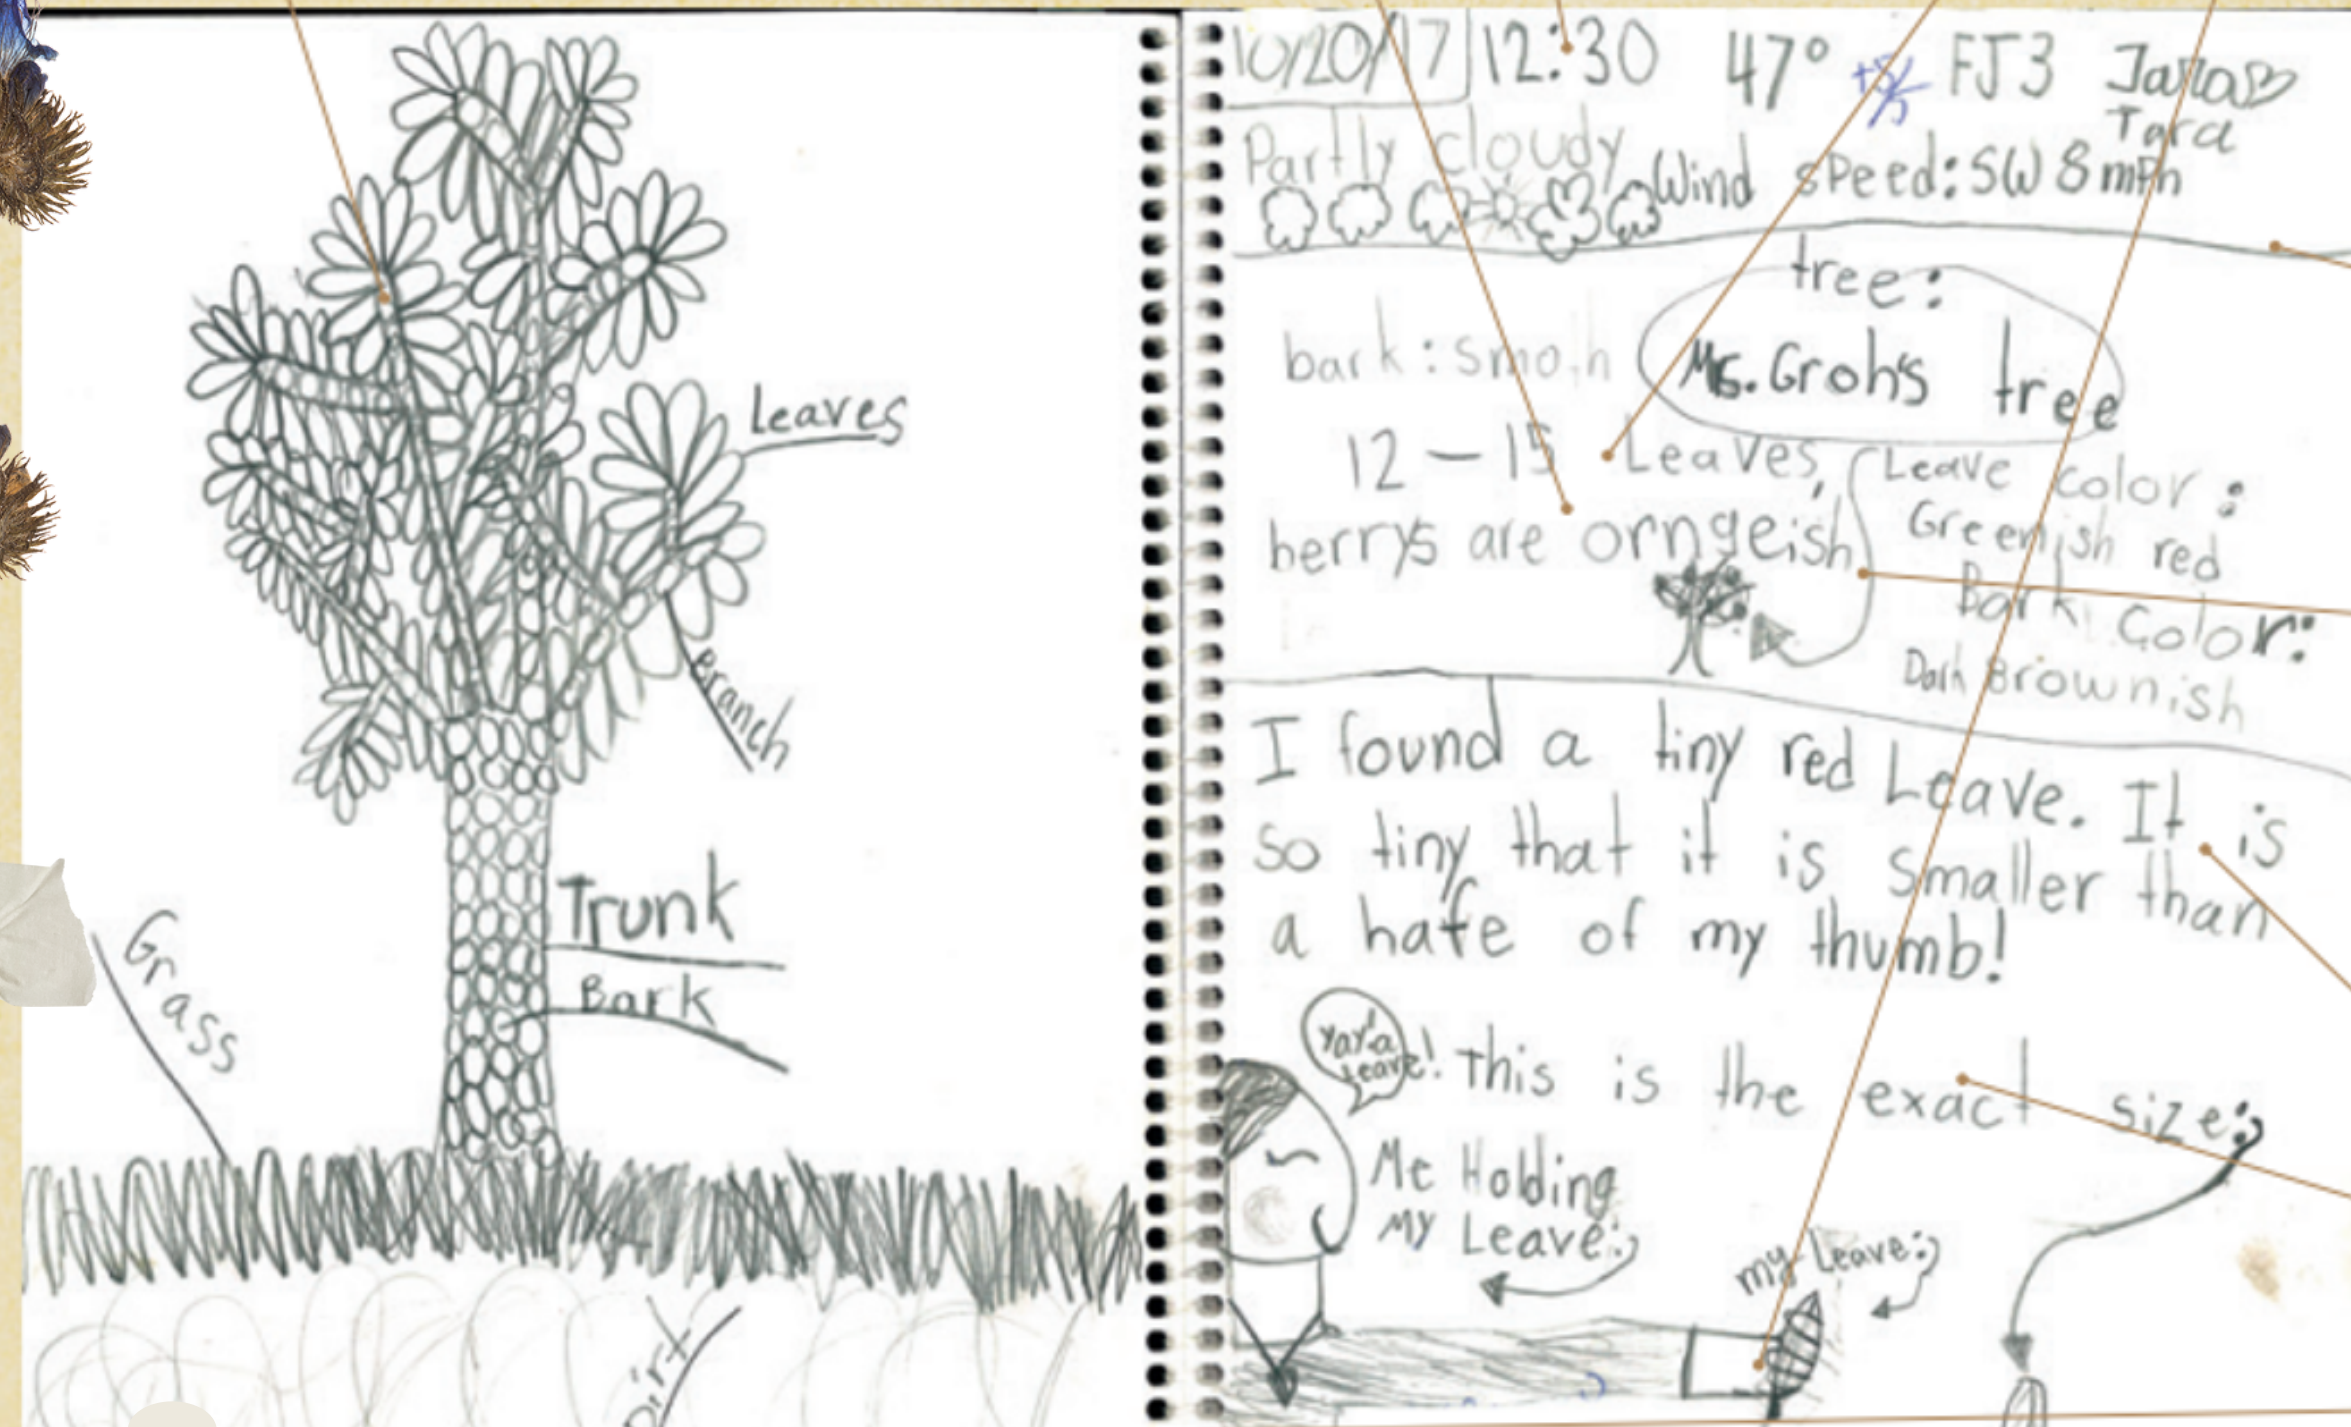 Leaves
Branch
Trunk
Bark
Grass
Dirt
10/20/17 12:30 47° FJ3
Tara
Partly cloudy Wind speed: SW 8 mph
tree:
Ms. Groh's tree
bark: smoth
12 - 15 Leaves,
berrys are orngeish
Leave color:
Greenish red
Bark color:
Dark Brownish
I found a tiny red Leave. It is
so tiny that it is smaller than
a hafe of my thumb!
Yay! a
Leave!
This is the exact size:
Me Holding
My Leave:
my Leave: